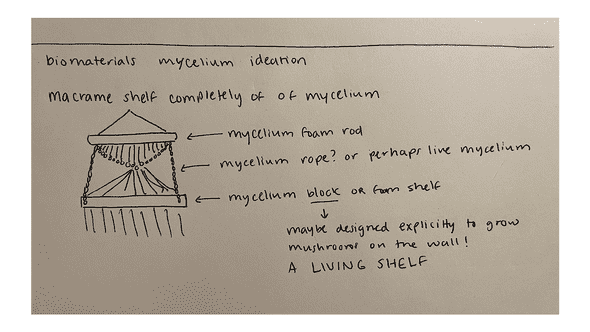 biomaterials mycelium ideation
macrame shelf completely of of mycelium
mycelium foam rod
mycelium rope? or perhaps live mycelium
mycelium block or foam shelf
maybe designed explicitly to grow
mushrooms on the wall!
A LIVING SHELF